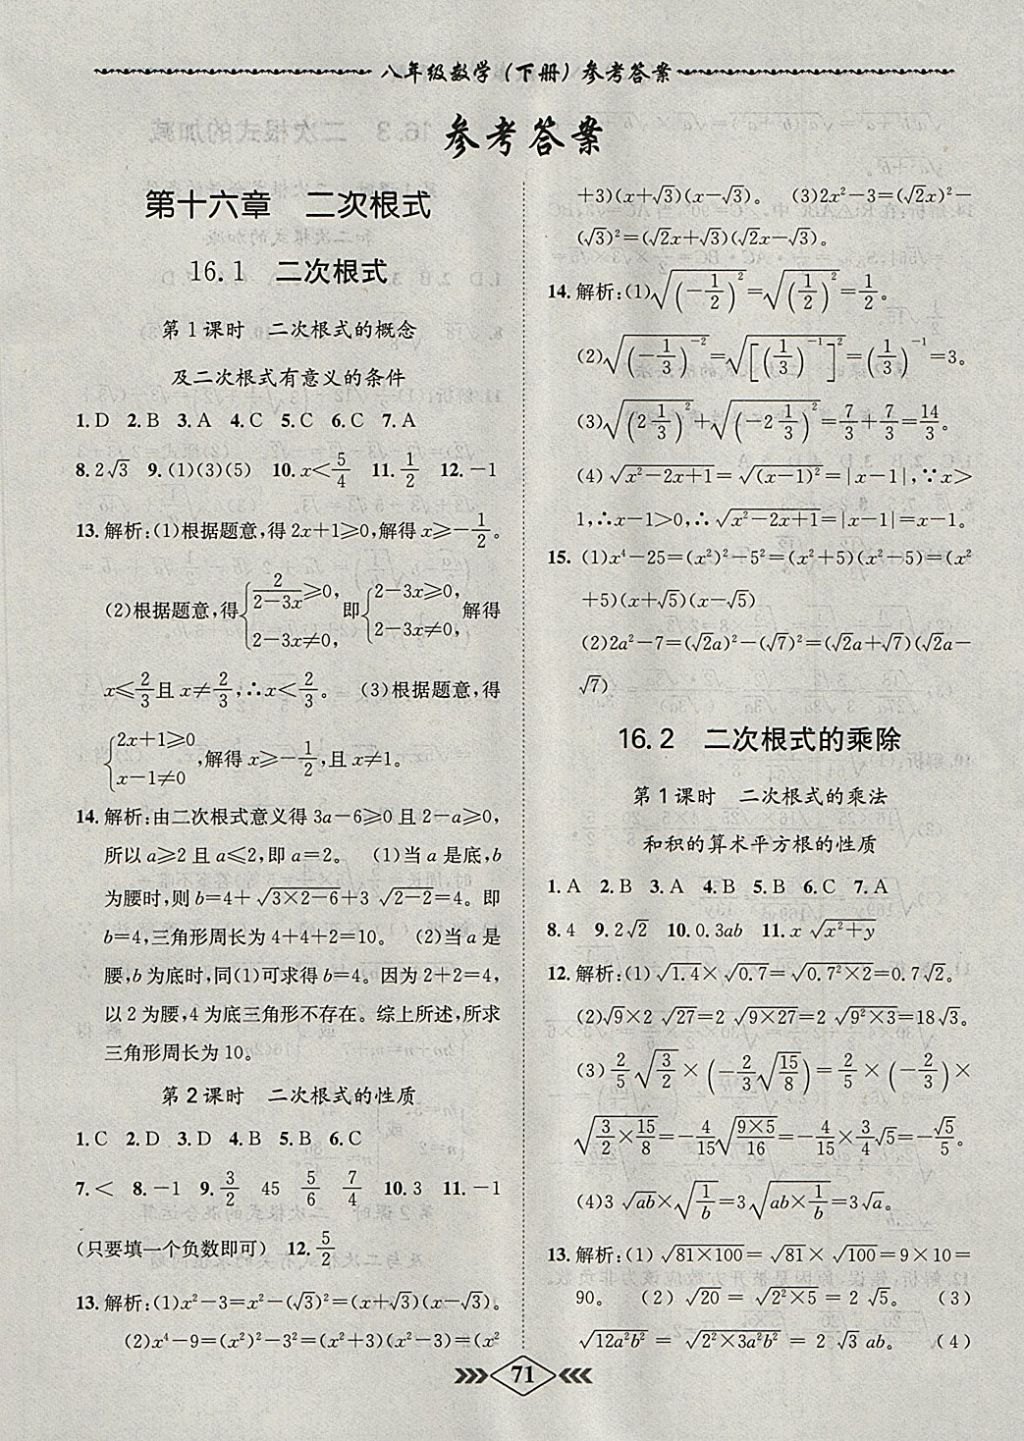 八年级数学(下册)参考答案
参考答案
第十六章 二次根式
16.1 二次根式
第1课时 二次根式的概念
及二次根式有意义的条件
1.D 2.B 3.A 4.C 5.C 6.C 7.A
8.2√3 9.(1)(3)(5) 10.x<5/4 11.1/2 12.-1
13.解析:(1)根据题意,得2x+1≥0,解得x≥-1/2。
(2)根据题意,得{2/(2-3x)≥0, 2-3x≠0, 即{2-3x≥0, 2-3x≠0, 解得
x≤2/3且x≠2/3,∴x<2/3。 (3)根据题意,得
{2x+1≥0 x-1≠0,解得x≥-1/2,且x≠1。
14.解析:由二次根式意义得3a-6≥0且2-a≥0,
所以a≥2且a≤2,即a=2。 (1)当a是底,b
为腰时,则b=4+√(3×2-6)+3√(2-2)=4。即
b=4,三角形周长为4+4+2=10。 (2)当a是
腰,b为底时,同(1)可求得b=4。因为2+2=4,
以2为腰,4为底三角形不存在。综上所述,所求
三角形周长为10。
第2课时 二次根式的性质
1.C 2.D 3.D 4.B 5.B 6.C
7.< 8.-1 9.3/2 45 5/6 7/4 10.3 11.-1
(只要填一个负数即可) 12.5/2
13.解析:(1)x²-3=x²-(√3)²=(x+√3)(x-√3)。
(2)x⁴-9=(x²)²-3²=(x²+3)(x²-3)=(x²
+3)(x+√3)(x-√3)。 (3)2x²-3=(√2x)²-
(√3)²=(√2x+√3)(√2x-√3)。
14.解析:(1)√((-1/2)²)=√((1/2)²)=1/2。
(2)√((-1/3)⁻²)=√([(1/3)⁻¹]²)=(1/3)⁻¹=3。
(3)√((2 1/3)²)+√((-2 1/3)²)=7/3+7/3=14/3。
(4)√(x²-2x+1)=√((x-1)²)=|x-1|,∵x>
1,∴x-1>0,∴√(x²-2x+1)=|x-1|=x-1。
15.(1)x⁴-25=(x²)²-5²=(x²+5)(x²-5)=(x²
+5)(x+√5)(x-√5)
(2)2a²-7=(√2a)²-(√7)²=(√2a+√7)(√2a-
√7)
16.2 二次根式的乘除
第1课时 二次根式的乘法
和积的算术平方根的性质
1.A 2.B 3.A 4.B 5.B 6.C 7.A
8.4 9.2√2 10.0.3ab 11.x√(x²+y)
12.解析:(1)√1.4×√0.7=√(0.7²×2)=0.7√2。
(2)√9×2√27=2√(9×27)=2√(9²×3)=18√3。
(3)2/5√(3/2)×(-2/3√(15/8))=2/5×(-2/3)×
√(3/2×15/8)=-4/15√(9×5/16)=-4/15×3/4√5=-√5/5。
(4)3√ab×√(1/b)=3√(ab×1/b)=3√a。
13.解析:(1)√(81×100)=√81×√100=9×10=
90。 (2)√20=√(2²×5)=2√5。 (3)
√(12a²b²)=√(2²×3a²b²)=2√3ab。 (4)
71